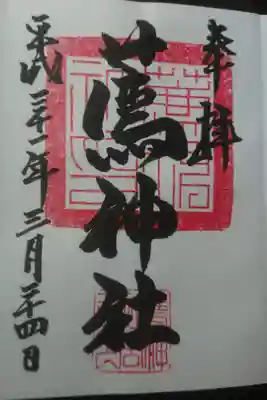 奉拝
蔦神社
平成三十一年三月二十四日